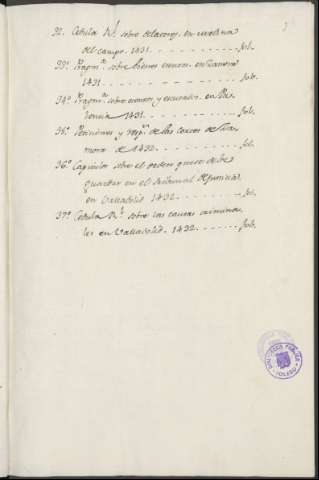 32. Cedula Rl sobre delaciones, en Medina
del campo. 1431. fol.
33. Pragmca sobre bienes esentos, en Zamora
1431. fol.
34. Pragmca sobre esentos, y escusados, en Pa-
lencia 1431. fol.
35. Peticiones y resp.s de las Cortes de Za-
mora de 1432. fol.
36. Capitulos sobre el orden que se debe
guardar en el tribunal de Justicia
en Valladolid. 1432. fol.
37. Cedula Rl sobre las causas crimina-
les en Valladolid. 1432. fol.
BIBLIOTECA PUBLICA
TOLEDO